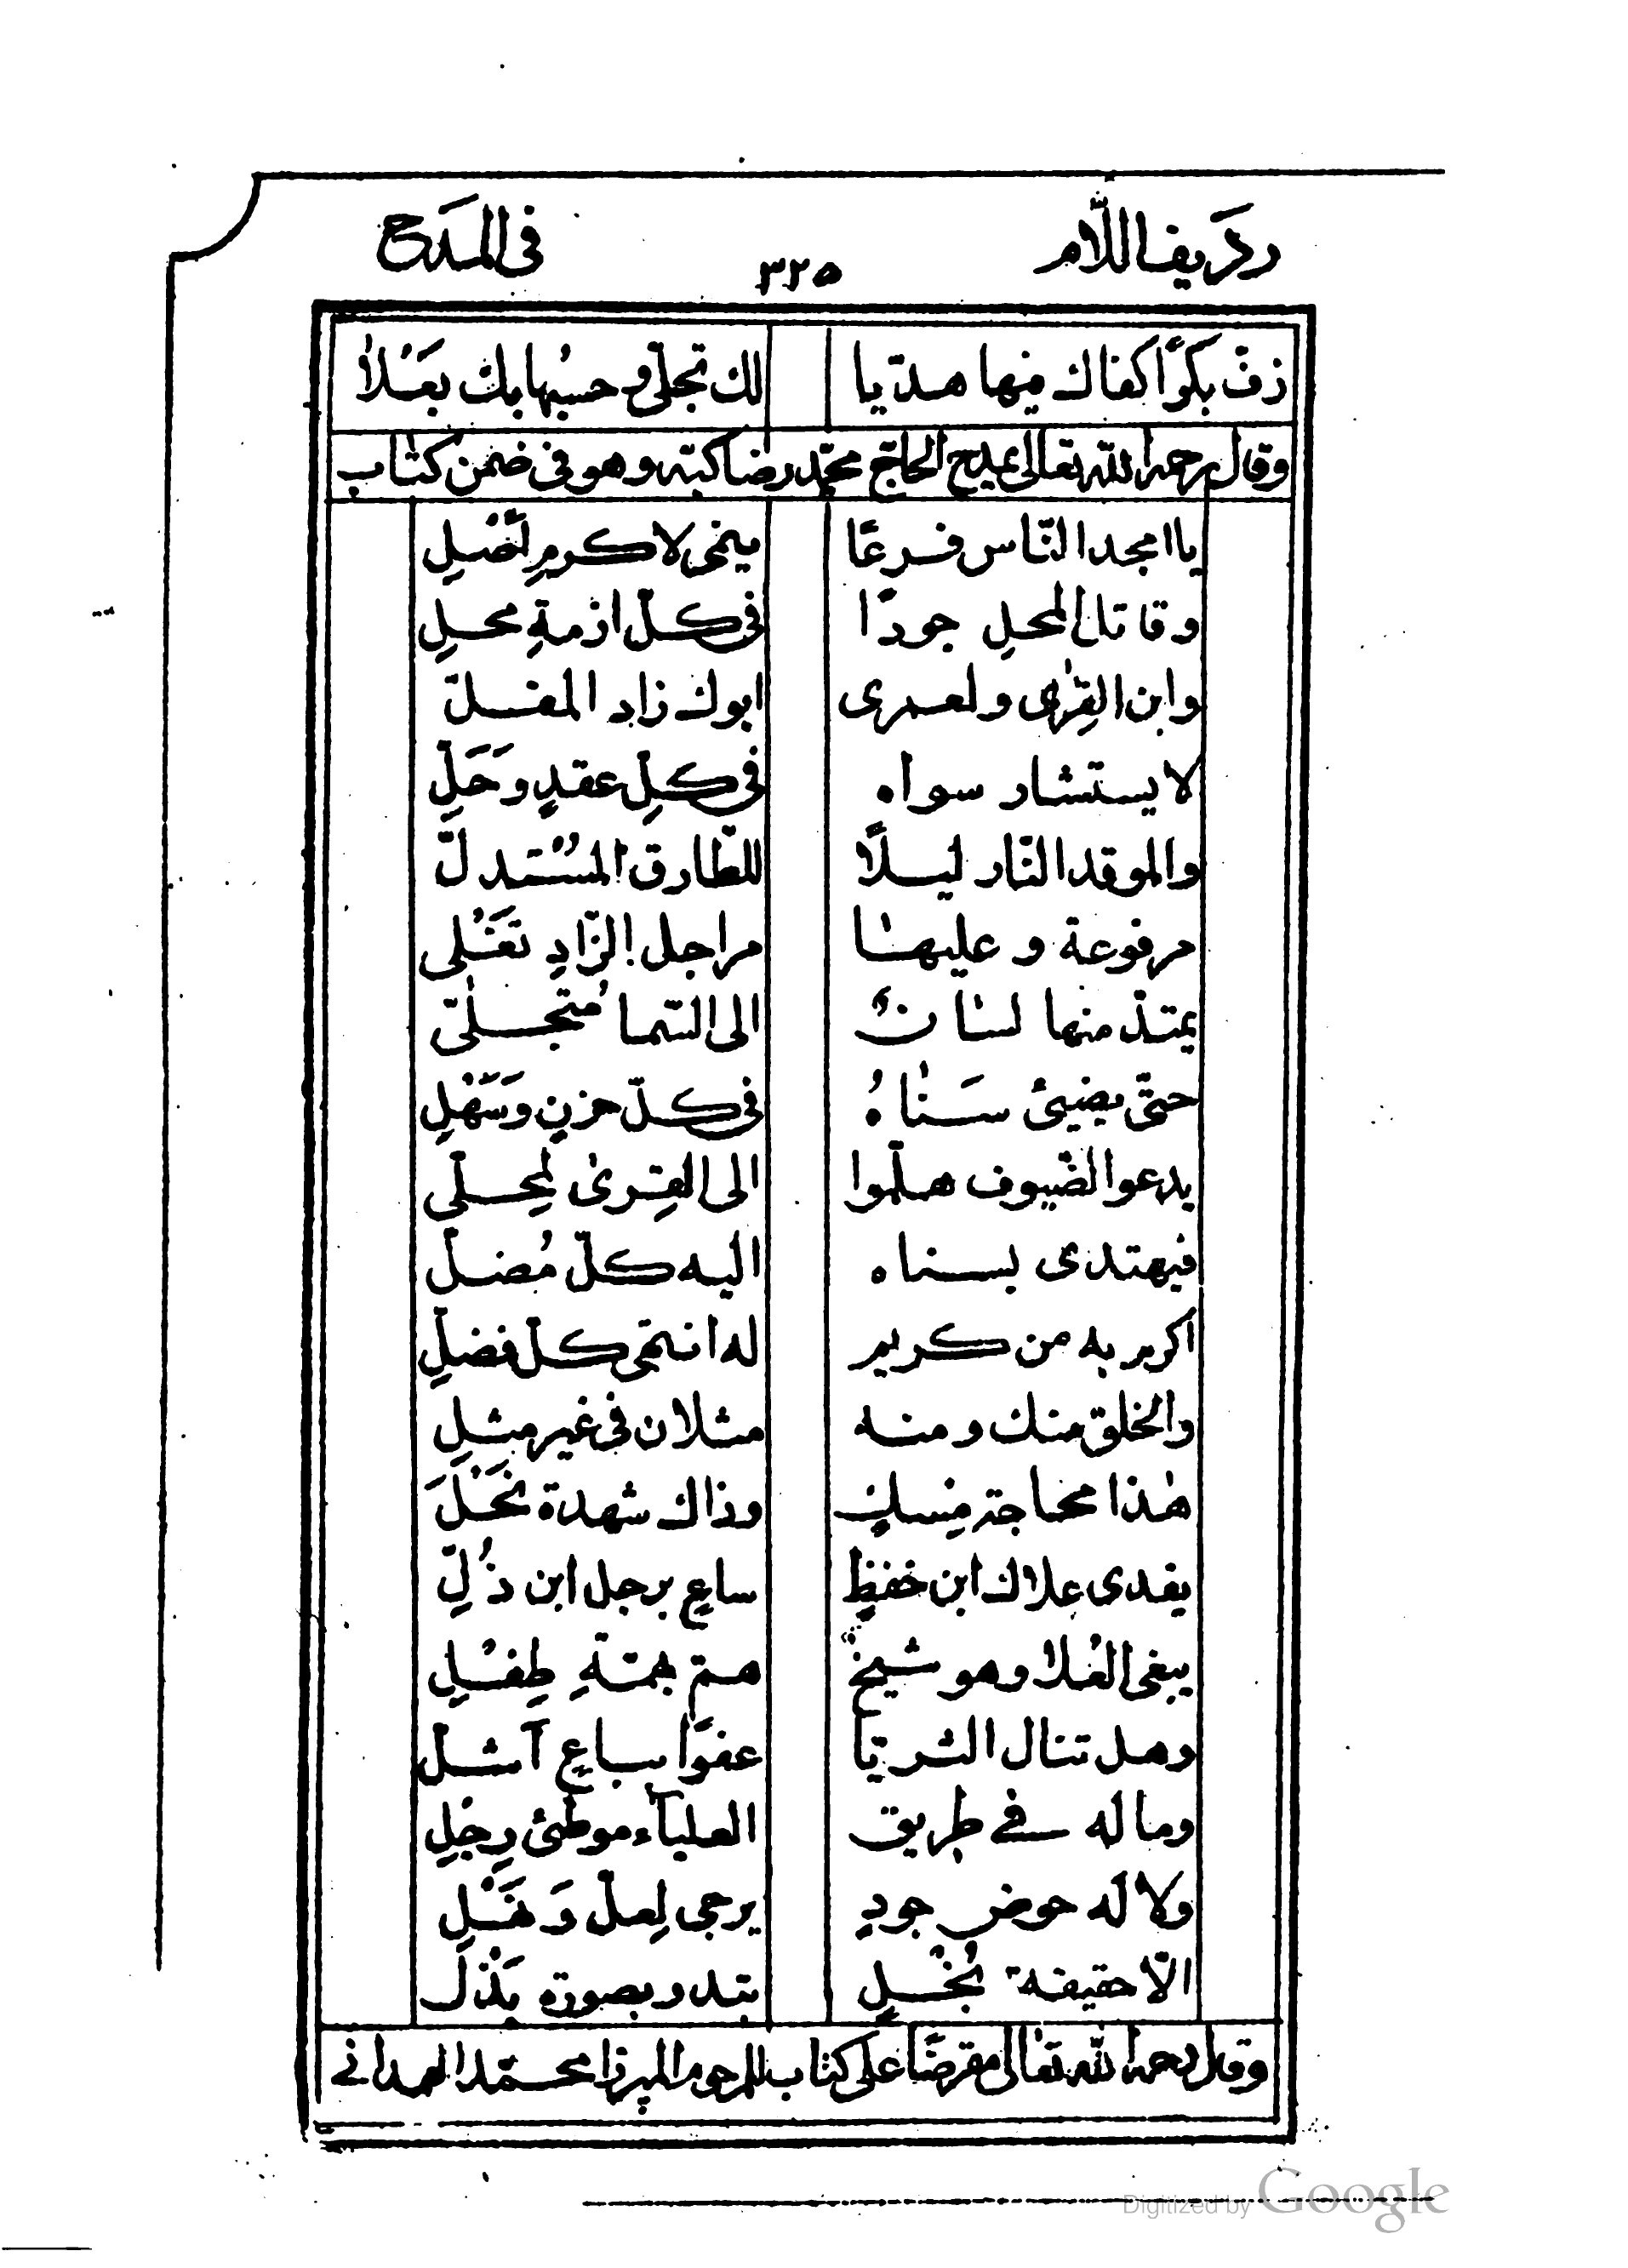 رديف اللّام ٣٢٥ في المدح
زفّ بكرًا كفاك منها هديا لك تجلى وحسبها بك بَعْلا
وقال رحمه الله تعالى يمدح الحاجّ محمّد رضا كبّه وهو في ضمن كتاب
يا امجد النّاس فرعًا ينمى لاكرمِ اصْلِ
وقاتل المحلِ جودًا في كلّ ازمةِ محلِ
وابن القِرٰى ولعمرى ابوك زاد المقلّ
لا يستشار سواه في كلِ عقدٍ وحَلِّ
والموقد النّار ليلًا للطّارق المُسْتدلّ
مرفوعة وعليها مراجل الزّادِ تغْلى
يمتدّ منها لسانٌ الى السّما متجلّى
حتّى يضيئ سَناهُ في كلّ حزنٍ وسَهْلِ
يدعوا الضّيوف هلمّوا الى القِرىٰ لمحلّى
فيهتدى بسناه اليه كلّ مُضلّ
اكرم به من كريم له انتمى كلّ فضلِ
والخلق منك ومنه مثلان في غير مثلِ
هٰذا مجاجة مِسكٍ وذاك شهدة نَحْلَ
يفدى علاك ابن خفضٍ ساعٍ برجل ابن ذُلِّ
يبغى العُلا وهو شيخ همّ بهمّةِ طِفْلِ
وهل تنال الثريّا عفوًا بباعٍ اشلّ
وما له في طريق العلياء موطئ رِجْلِ
ولا له حوض جودٍ يرجى لِعلّ وَنَهْلِ
الّا حقيقة بُخْلٍ تبدو بصورة بَذْلِ
وقال رحمه الله تعالى مقرضًا على كتاب للمرحوم الميرزا محمّد الهمدانى
Digitized by Google